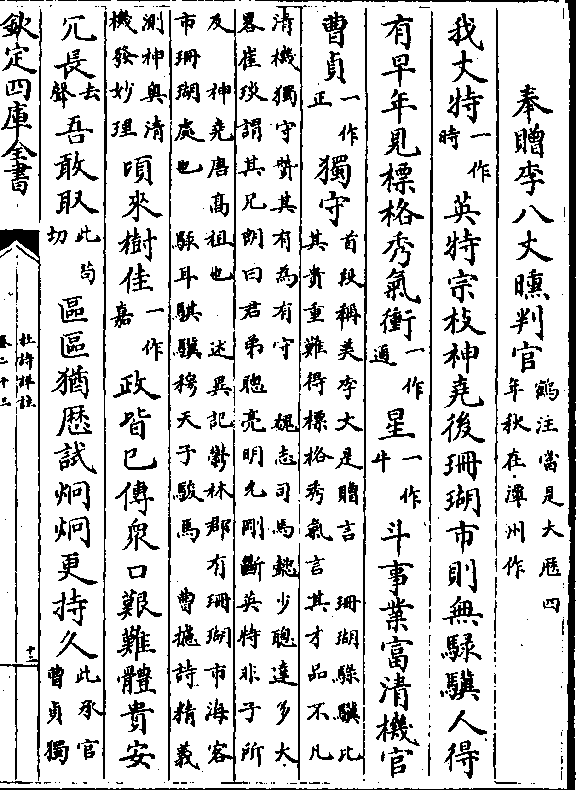 奉贈李八丈曛判官
鶴注當是大厯四
年秋在潭州作
我丈特
一作
時
英特宗枝神堯後珊瑚市則無騄驥人得
有早年見標格秀氣衝
一作
通
星
一作
牛
斗事業富清機官
曹貞
一作
正
獨守
首段稱美李丈是贈言 珊瑚騄驥比
其貴重難得標格秀氣言其才品不凡
清機獨守贊其有為有守 魏志司馬懿少聰達多大
畧崔琰謂其兄朗曰君弟聰亮明允剛斷英特非子所
及 神堯唐高祖也 述異記鬱林郡有珊瑚市海客
市珊瑚處也 騄耳騏驥穆天子駿馬 曹攄詩精義
測神奥清
機發妙理
頃來樹佳
一作
嘉
政皆已傳衆口艱難體貴安
冗長
去
聲
吾敢取
此茍
切
區區猶歴試炯炯更持久
此承官
曹貞獨
欽定四庫全書
杜詩詳註
卷二十三
十二